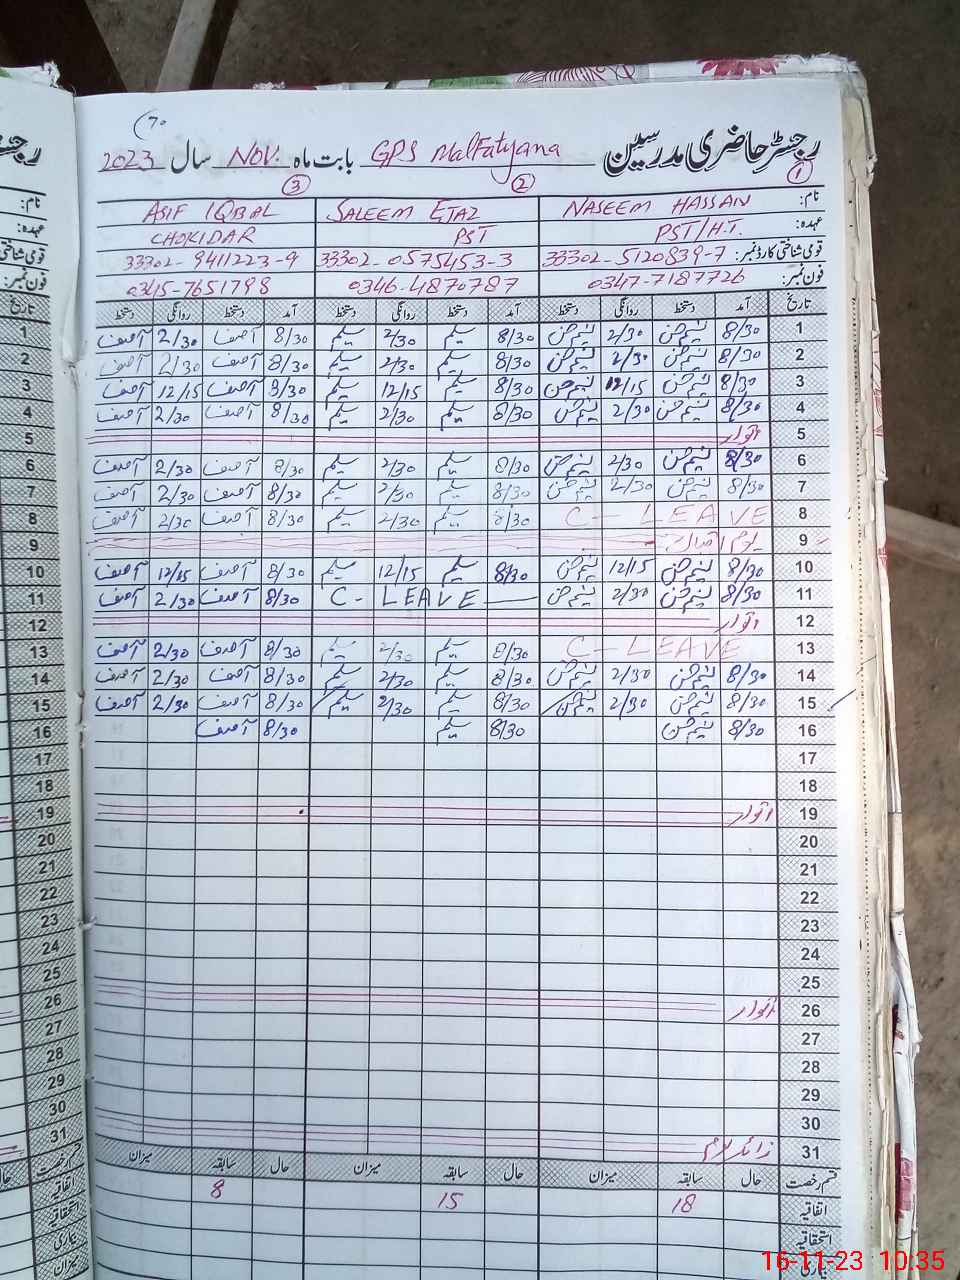 (70
رجسٹر حاضری مدرسین GPS Malfatyana بابت ماہ NOV. سال 2023
① ② ③
نام: NASEEM HASSAN SALEEM EJAZ ASIF IQBAL
عہدہ: PST/H.T. PST CHOKIDAR
قومی شناختی کارڈ نمبر: 33302-5120839-7 33302-0575453-3 33302-9411223-9
فون نمبر: 0347-7187726 0346-4870787 0345-7651798
تاریخ آمد دستخط روانگی دستخط آمد دستخط روانگی دستخط آمد دستخط روانگی دستخط
1 8/30 نسیم حسن 2/30 نسیم حسن 8/30 سلیم 2/30 سلیم 8/30 آصف 2/30 آصف
2 8/30 نسیم حسن 2/30 نسیم حسن 8/30 سلیم 2/30 سلیم 8/30 آصف 2/30 آصف
3 8/30 نسیم حسن 12/15 نسیم حسن 8/30 سلیم 12/15 سلیم 8/30 آصف 12/15 آصف
4 8/30 نسیم حسن 2/30 نسیم حسن 8/30 سلیم 2/30 سلیم 8/30 آصف 2/30 آصف
5 اتوار
6 8/30 نسیم حسن 2/30 نسیم حسن 8/30 سلیم 2/30 سلیم 8/30 آصف 2/30 آصف
7 8/30 نسیم حسن 2/30 نسیم حسن 8/30 سلیم 2/30 سلیم 8/30 آصف 2/30 آصف
8 C-LEAVE 8/30 سلیم 2/30 سلیم 8/30 آصف 2/30 آصف
9 یوم اقبال
10 8/30 نسیم حسن 12/15 نسیم حسن 8/30 سلیم 12/15 سلیم 8/30 آصف 12/15 آصف
11 8/30 نسیم حسن 2/30 نسیم حسن C-LEAVE 8/30 آصف 2/30 آصف
12 اتوار
13 C-LEAVE 8/30 سلیم 2/30 سلیم 8/30 آصف 2/30 آصف
14 8/30 نسیم حسن 2/30 نسیم حسن 8/30 سلیم 2/30 سلیم 8/30 آصف 2/30 آصف
15 8/30 نسیم حسن 2/30 نسیم حسن 8/30 سلیم 2/30 سلیم 8/30 آصف 2/30 آصف
16 8/30 نسیم حسن 8/30 سلیم 8/30 آصف
17
18
19 اتوار
20
21
22
23
24
25
26 اتوار
27
28
29
30
31 زائد یوم
قسم رخصت حال سابقہ میزان حال سابقہ میزان حال سابقہ میزان
اتفاقیہ 18 15 8
استحقاقیہ
بیماری
16-11-23 10:35